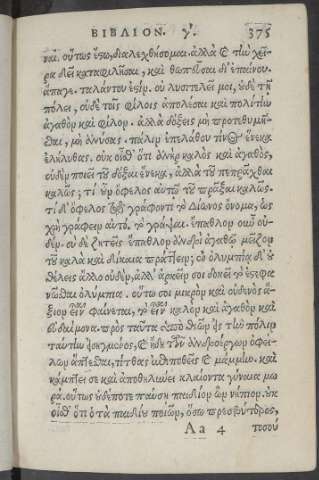 ΒΙΒΛΙΟΝ. γ'. 375
ναί. οὕτως ἔξω, διαλεχθήσομαι. ἀλλὰ καὶ τὴν χεῖ
ρα δεῖ καταφιλῆσαι, καὶ θωπεῦσαι δι' ἐπαίνου.
ἄπαγε. ταλάντου ἐστίν. οὐ λυσιτελεῖ μοι, οὐδὲ τῇ
πόλει, οὐδὲ τοῖς φίλοις ἀπολέσαι καὶ πολίτην
ἀγαθὸν καὶ φίλον. ἀλλὰ δόξεις μὴ προτεθυμῆ-
σθαι, μὴ ἀνύσας. πάλιν ἐπελάθου τίνος ἕνεκα
ἐλήλυθας. οὐκ οἶσθ' ὅτι ἀνὴρ καλὸς καὶ ἀγαθὸς,
οὐδὲν ποιεῖ τοῦ δόξαι ἕνεκα, ἀλλὰ τοῦ πεπρᾶχθαι
καλῶς; τί οὖν ὄφελος αὐτῷ τοῦ πρᾶξαι καλῶς.
τί δ' ὄφελος τῷ γράφοντι τὸ Δίωνος ὄνομα, ὡς
χρὴ γράφειν αὐτό. τὸ γράψαι. ἔπαθλον οὖν οὐ-
δέν. σὺ δὲ ζητεῖς ἔπαθλον ἀνδρὶ ἀγαθῷ μεῖζον
τοῦ καλὰ καὶ δίκαια πράττειν; ἐν ὀλυμπίᾳ δ' οὐ
θέλεις ἄλλο οὐδὲν, ἀλλ' ἀρκεῖν σοι δοκεῖ τὸ ἐστεφα
νῶσθαι ὀλύμπια. οὕτω σοι μικρὸν καὶ οὐδενὸς ἄ-
ξιον εἶναι φαίνεται, τὸ εἶναι καλὸν καὶ ἀγαθὸν καὶ
εὐδαίμονα. πρὸς ταῦτα ὑπὸ θεῶν εἰς τὴν πόλιν
ταύτην
λων ἅπτεσθαι, τίτθας ἐπιποθεῖς καὶ μάμμην. καὶ
κάμπτει σε καὶ ἀποθηλύνει κλαίοντα γύναια μω
ρά. οὕτως οὐδέποτε παύσῃ παιδίον ὢν νήπιον. οὐκ
οἶσθ' ὅτι ὁ τὰ παιδίου ποιῶν, ὅσῳ πρεσβύτερος,
Aa 4 τοσού